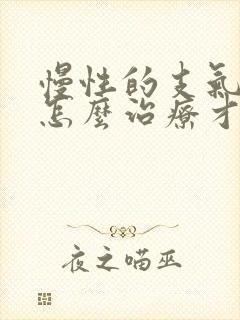 慢性的支氣
怎麼治療才
夜之喵巫